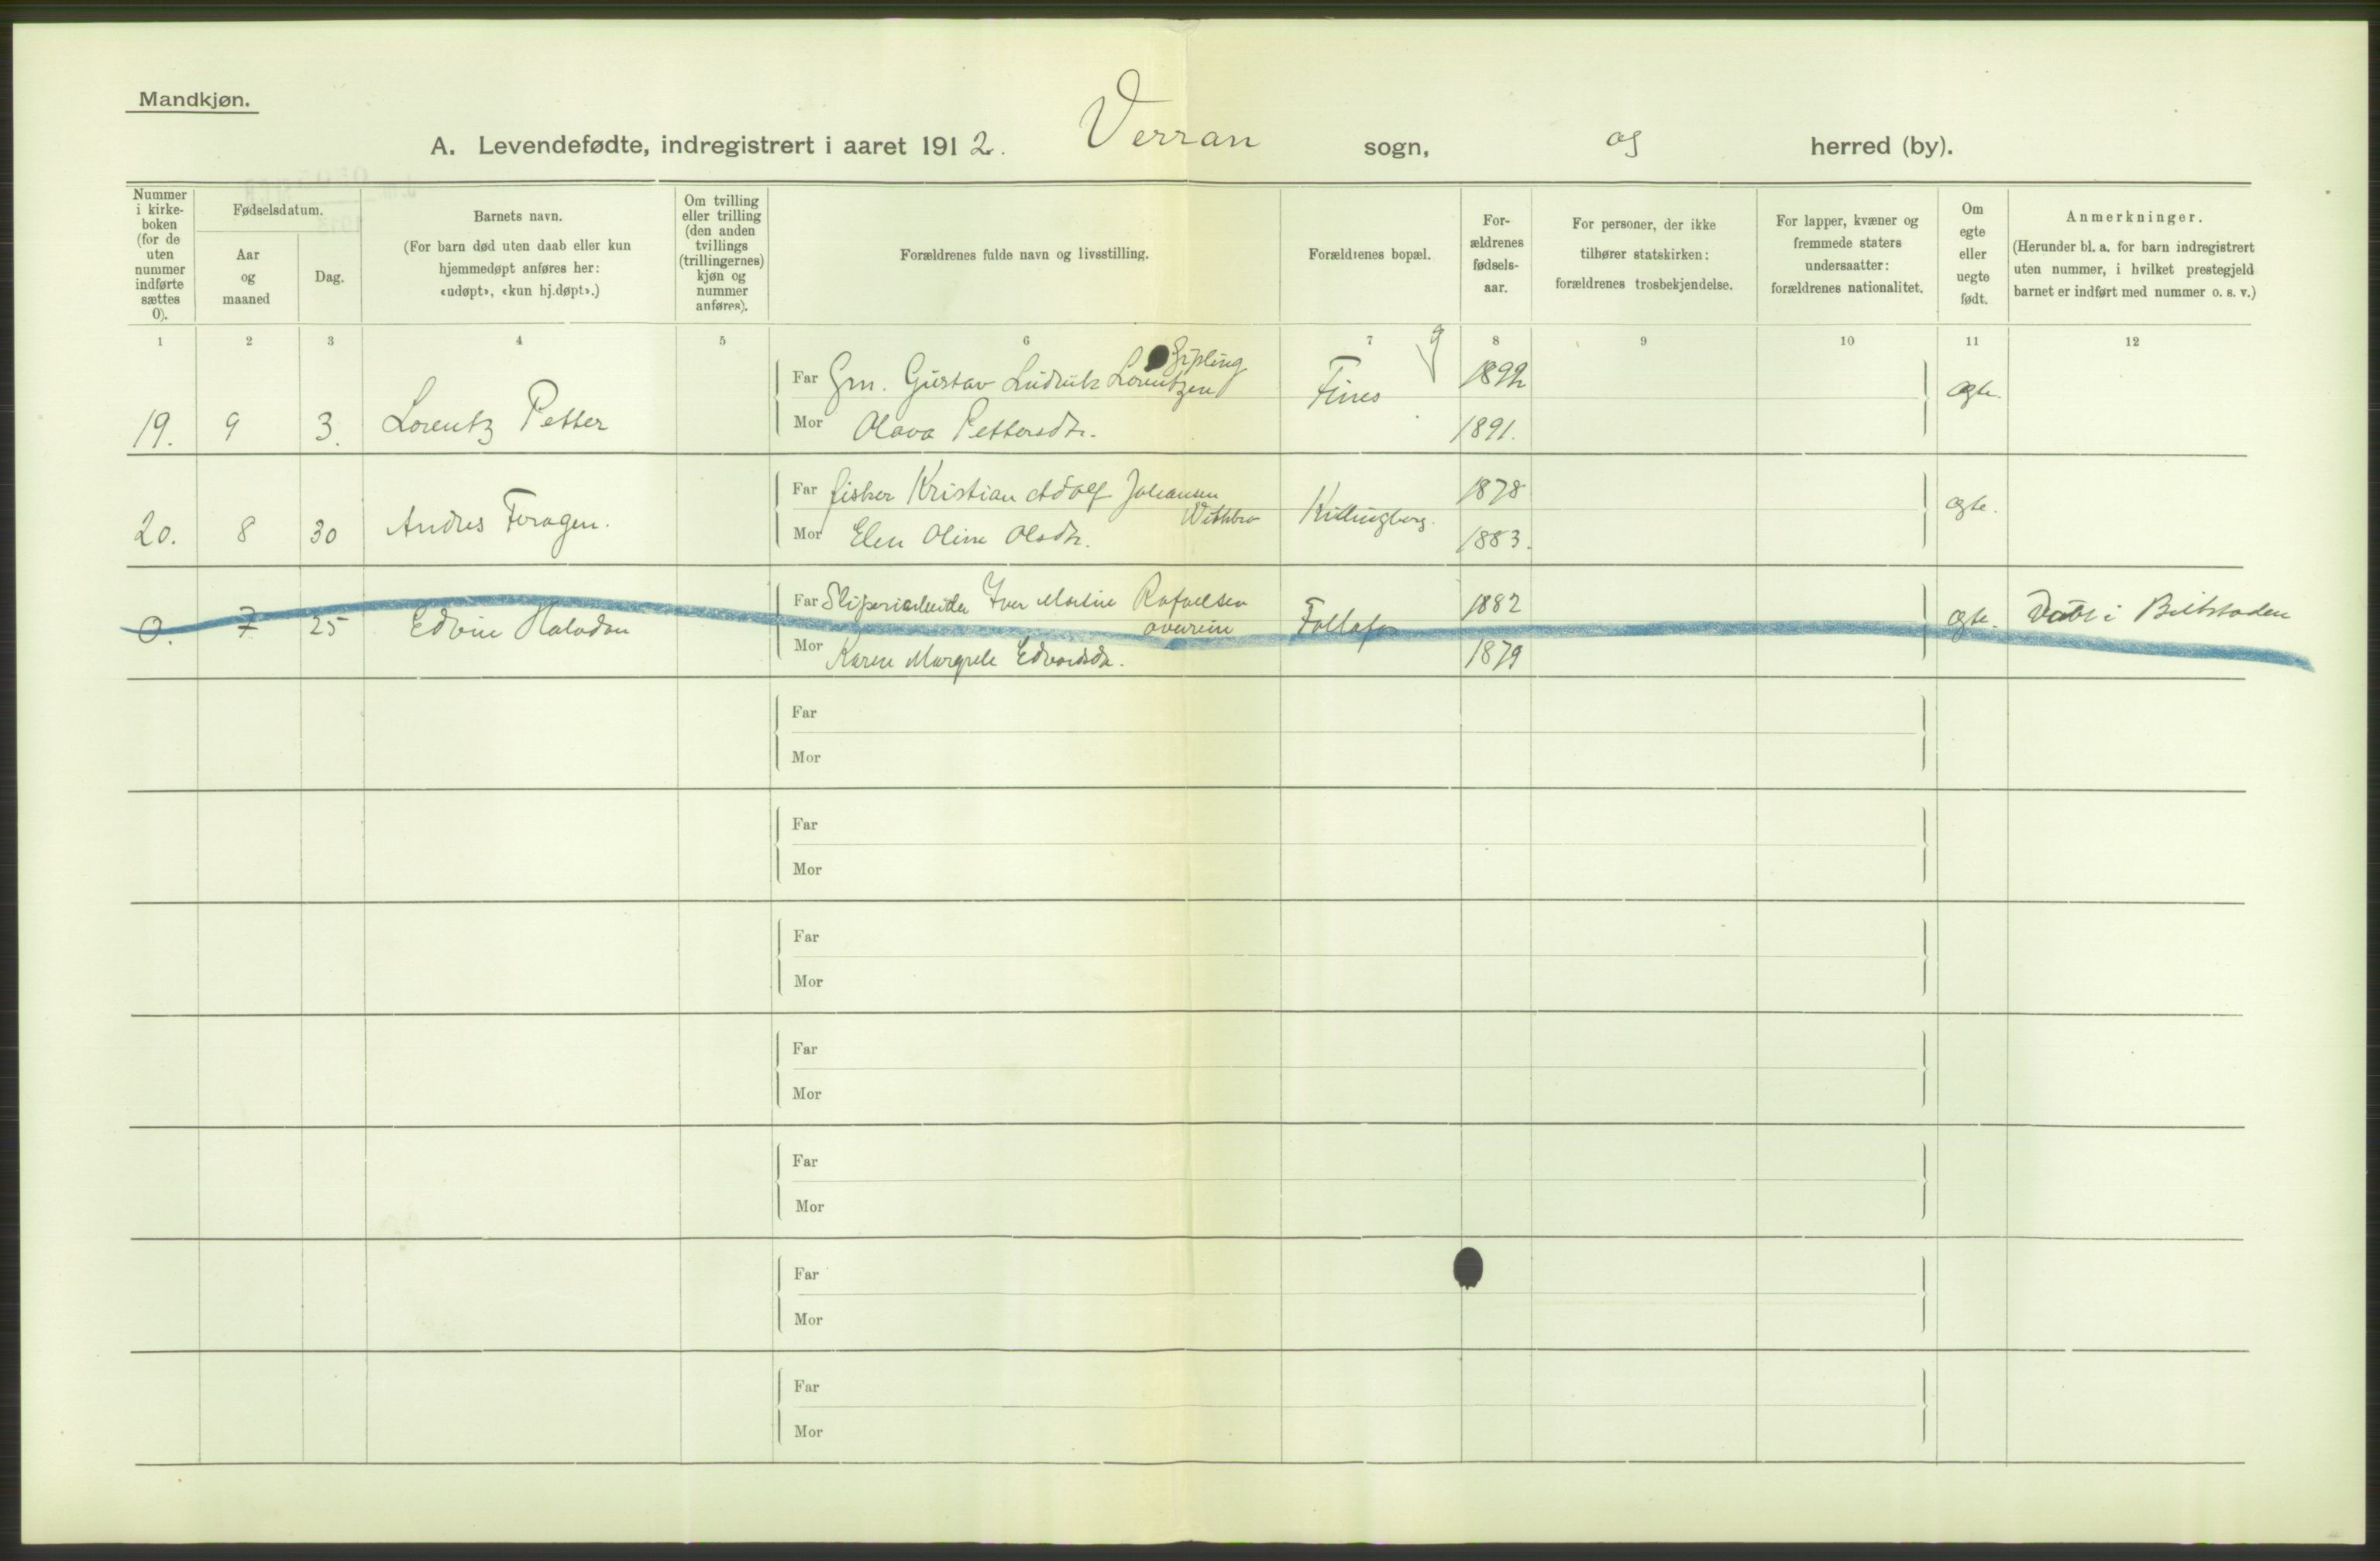 Mandkjøn.
A. Levendefødte, indregistrert i aaret 1912. Verran sogn, og herred (by).
Nummer i kirke-boken (for de uten nummer indførte sættes 0).
Fødselsdatum.
Aar og maaned
Dag.
Barnets navn.
(For barn død uten daab eller kun hjemmedøpt anføres her: «udøpt», «kun hj.døpt».)
Om tvilling eller trilling (den anden tvillings (trillingernes) kjøn og nummer anføres).
Forældrenes fulde navn og livsstilling.
Forældrenes bopæl.
For-ældrenes fødsels-aar.
For personer, der ikke tilhører statskirken: forældrenes trosbekjendelse.
For lapper, kvæner og fremmede staters undersaatter: forældrenes nationalitet.
Om egte eller uegte født.
Anmerkninger.
(Herunder bl. a. for barn indregistrert uten nummer, i hvilket prestegjeld barnet er indført med nummer o. s. v.)
1 2 3 4 5 6 7 8 9 10 11 12
Far Grn. Gustav Ludvik Lorentzen Fines 1892
19. 9 3. Lorentz Petter Mor Olava Pettersdtr. 1891. ægte.
Far fisker Kristian Adolf Johansen Killingberg. 1878
20. 8 30 Andres Feragen. Mor Elen Oline Olsdtr. 1883. ægte.
Far Sliperiarbeider Iver Martin Rafaelsen Follafos 1882
0. 7 25 Edvin Halvdan Mor Karen Margrete Edvardsdtr. 1879 ægte. Døbt i Beitstaden
Far
Mor
Far
Mor
Far
Mor
Far
Mor
Far
Mor
Far
Mor
Far
Mor